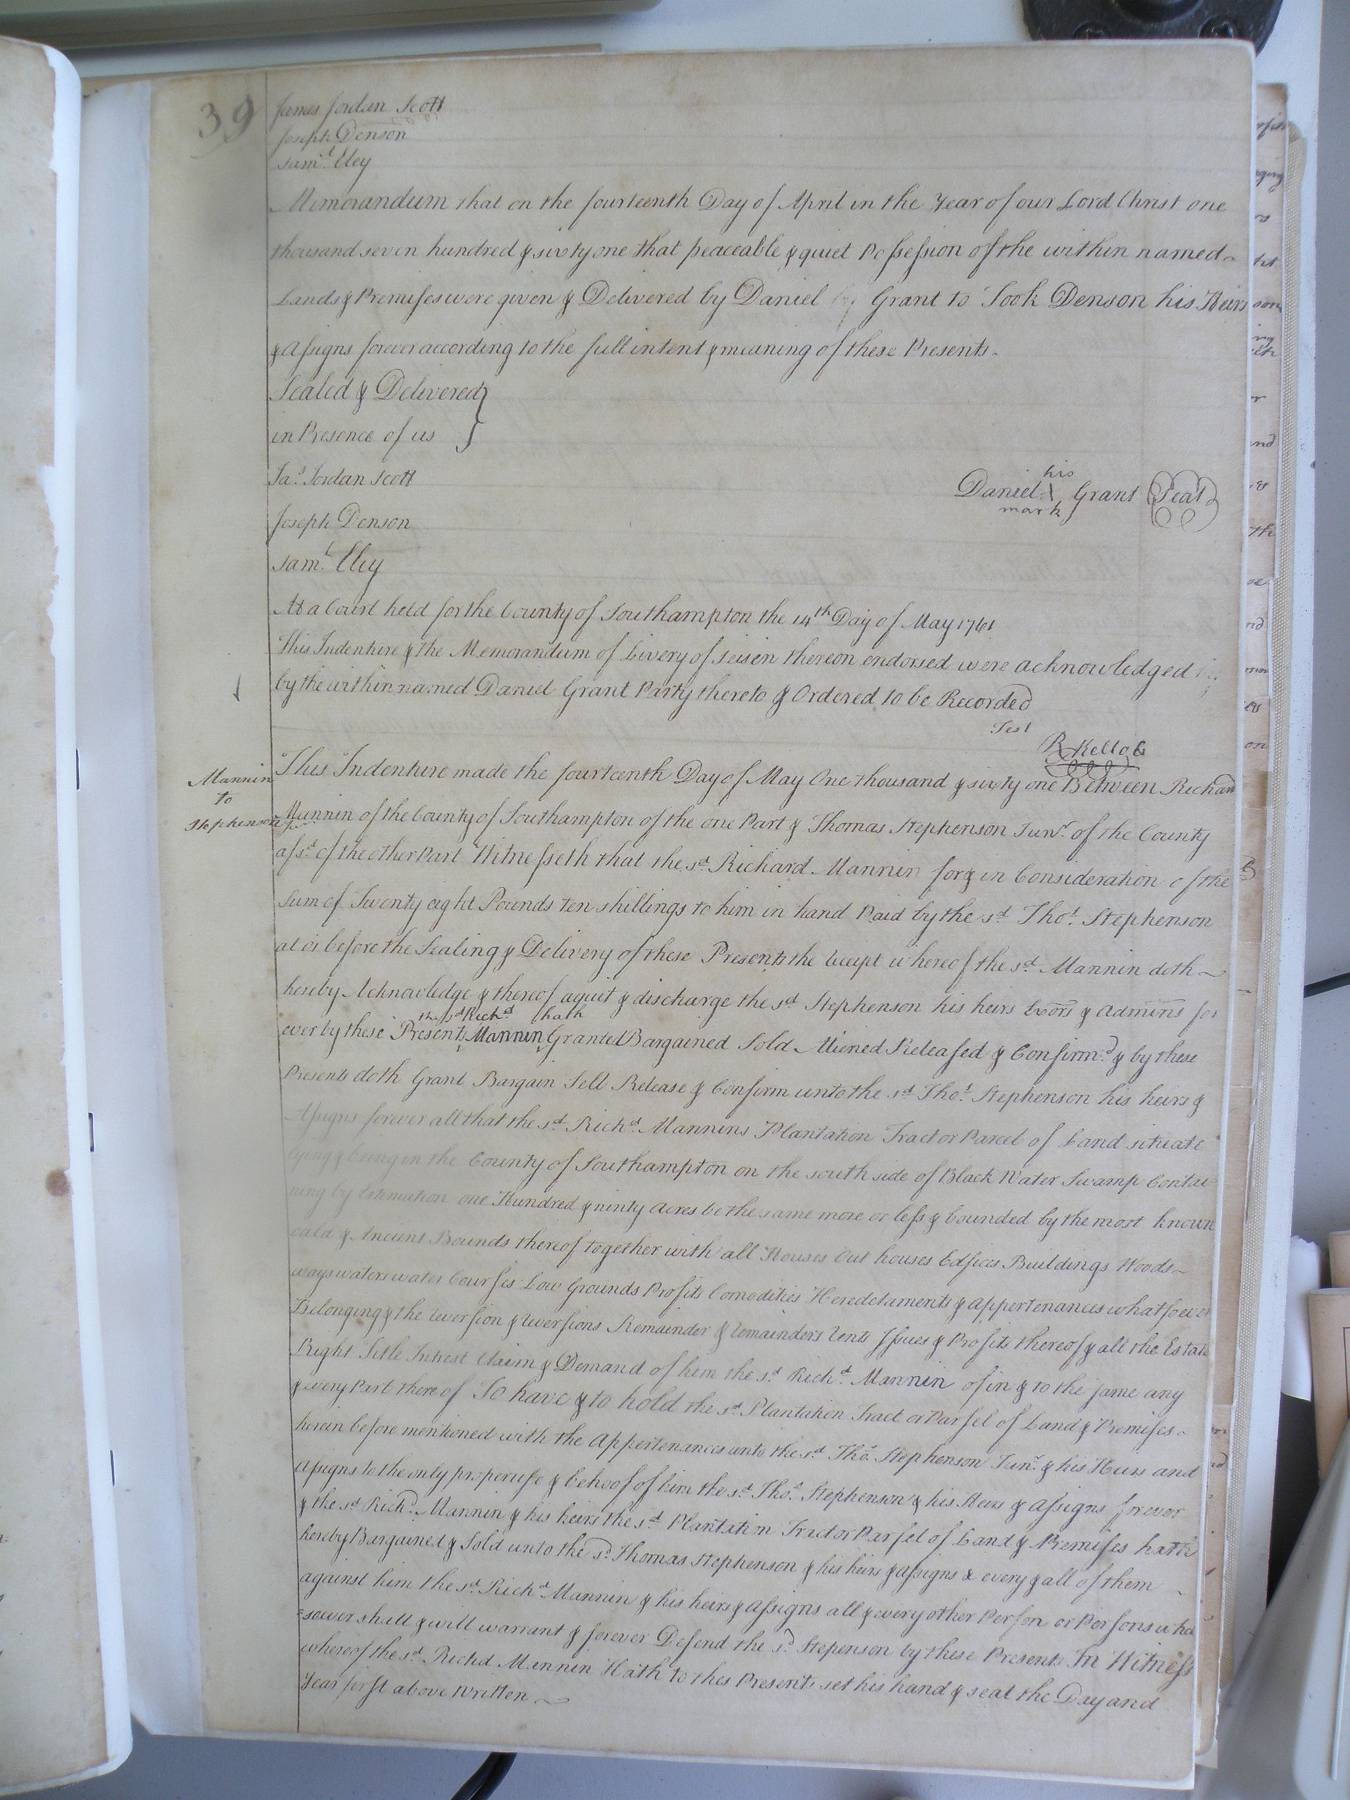 39
James Jordan Scott
Joseph Denson
Saml. Eley
Memorandum that on the fourteenth Day of April in the Year of our Lord Christ one
thousand seven hundred & sixty one that peaceable & quiet Possession of the within named
Lands & Premises were given & Delivered by Daniel Grant to Took Denson his Heirs
& Assigns forever according to the full intent & meaning of these Presents.
Sealed & Delivered }
in Presence of us }
Jas. Jordan Scott
his
Daniel X Grant Seal
mark
Joseph Denson
Saml. Eley
At a Court held for the County of Southampton the 14th Day of May 1761
This Indenture & the Memorandum of Livery of Seisen thereon endorsed were acknowledged
by the within named Daniel Grant Party thereto & Ordered to be Recorded
Test
R Kello C
Mannin
to
Stephenson
This Indenture made the fourteenth Day of May One thousand & sixty one Between Richard
Mannin of the County of Southampton of the one Part & Thomas Stephenson Junr. of the County
afsd. of the other Part Witnesseth that the sd. Richard Mannin for & in Consideration of the
Sum of Twenty eight Pounds ten shillings to him in hand Paid by the sd. Thos. Stephenson
at or before the Sealing & Delivery of these Presents the receipt whereof the sd. Mannin doth
hereby Acknowledge & thereof aquit & discharge the sd. Stephenson his heirs Exors & Admins for
the sd Richd hath
ever by these Presents Mannin Granted Bargained Sold Aliened Released & Confirmd. & by these
Presents doth Grant Bargain Sell Release & Confirm unto the sd. Thos. Stephenson his heirs &
Assigns forever all that the sd. Richd. Mannins Plantation Tract or Parcel of Land situate
lying & being in the County of Southampton on the south side of Black Water Swamp Contai
ning by Estimation one Hundred & ninty Acres be the same more or less & bounded by the most known
& Ancient Bounds thereof together with all Houses Out houses Edfices Buildings Woods
ways waters water Courses Low Grounds Profits Comodities Heredetaments & Appertenances whatsoever
Belonging & the reversion & reversions Remainder & remainders rents Issues & Profits thereof & all the Estate
Right Title Intrest Claim & Demand of him the sd. Richd. Mannin of in & to the same any
& every Part thereof To have & to hold the sd. Plantation Tract or Parsel of Land & Premises
herein before mentioned with the Appertenances unto the sd. Thos. Stephenson Junr. & his Heirs and
Assigns to the only proper use & behoof of him the sd. Thos. Stephenson & his Heirs & Assigns forever
& the sd. Richd. Mannin & his heirs the sd. Plantation Tract or Parsel of Land & Premises hath
hereby Bargained & Sold unto the sd. Thomas Stephenson & his heirs & assigns & every & all of them
against him the sd. Richd. Mannin & his heirs & Assigns all & every other Person or Persons who
=soever shall & will warrant & forever Defend the sd. Stepenson by these Presents In Witness
whereof the sd. Richd Mannin Hath to thes Presents set his hand & seal the Day and
Year first above Written